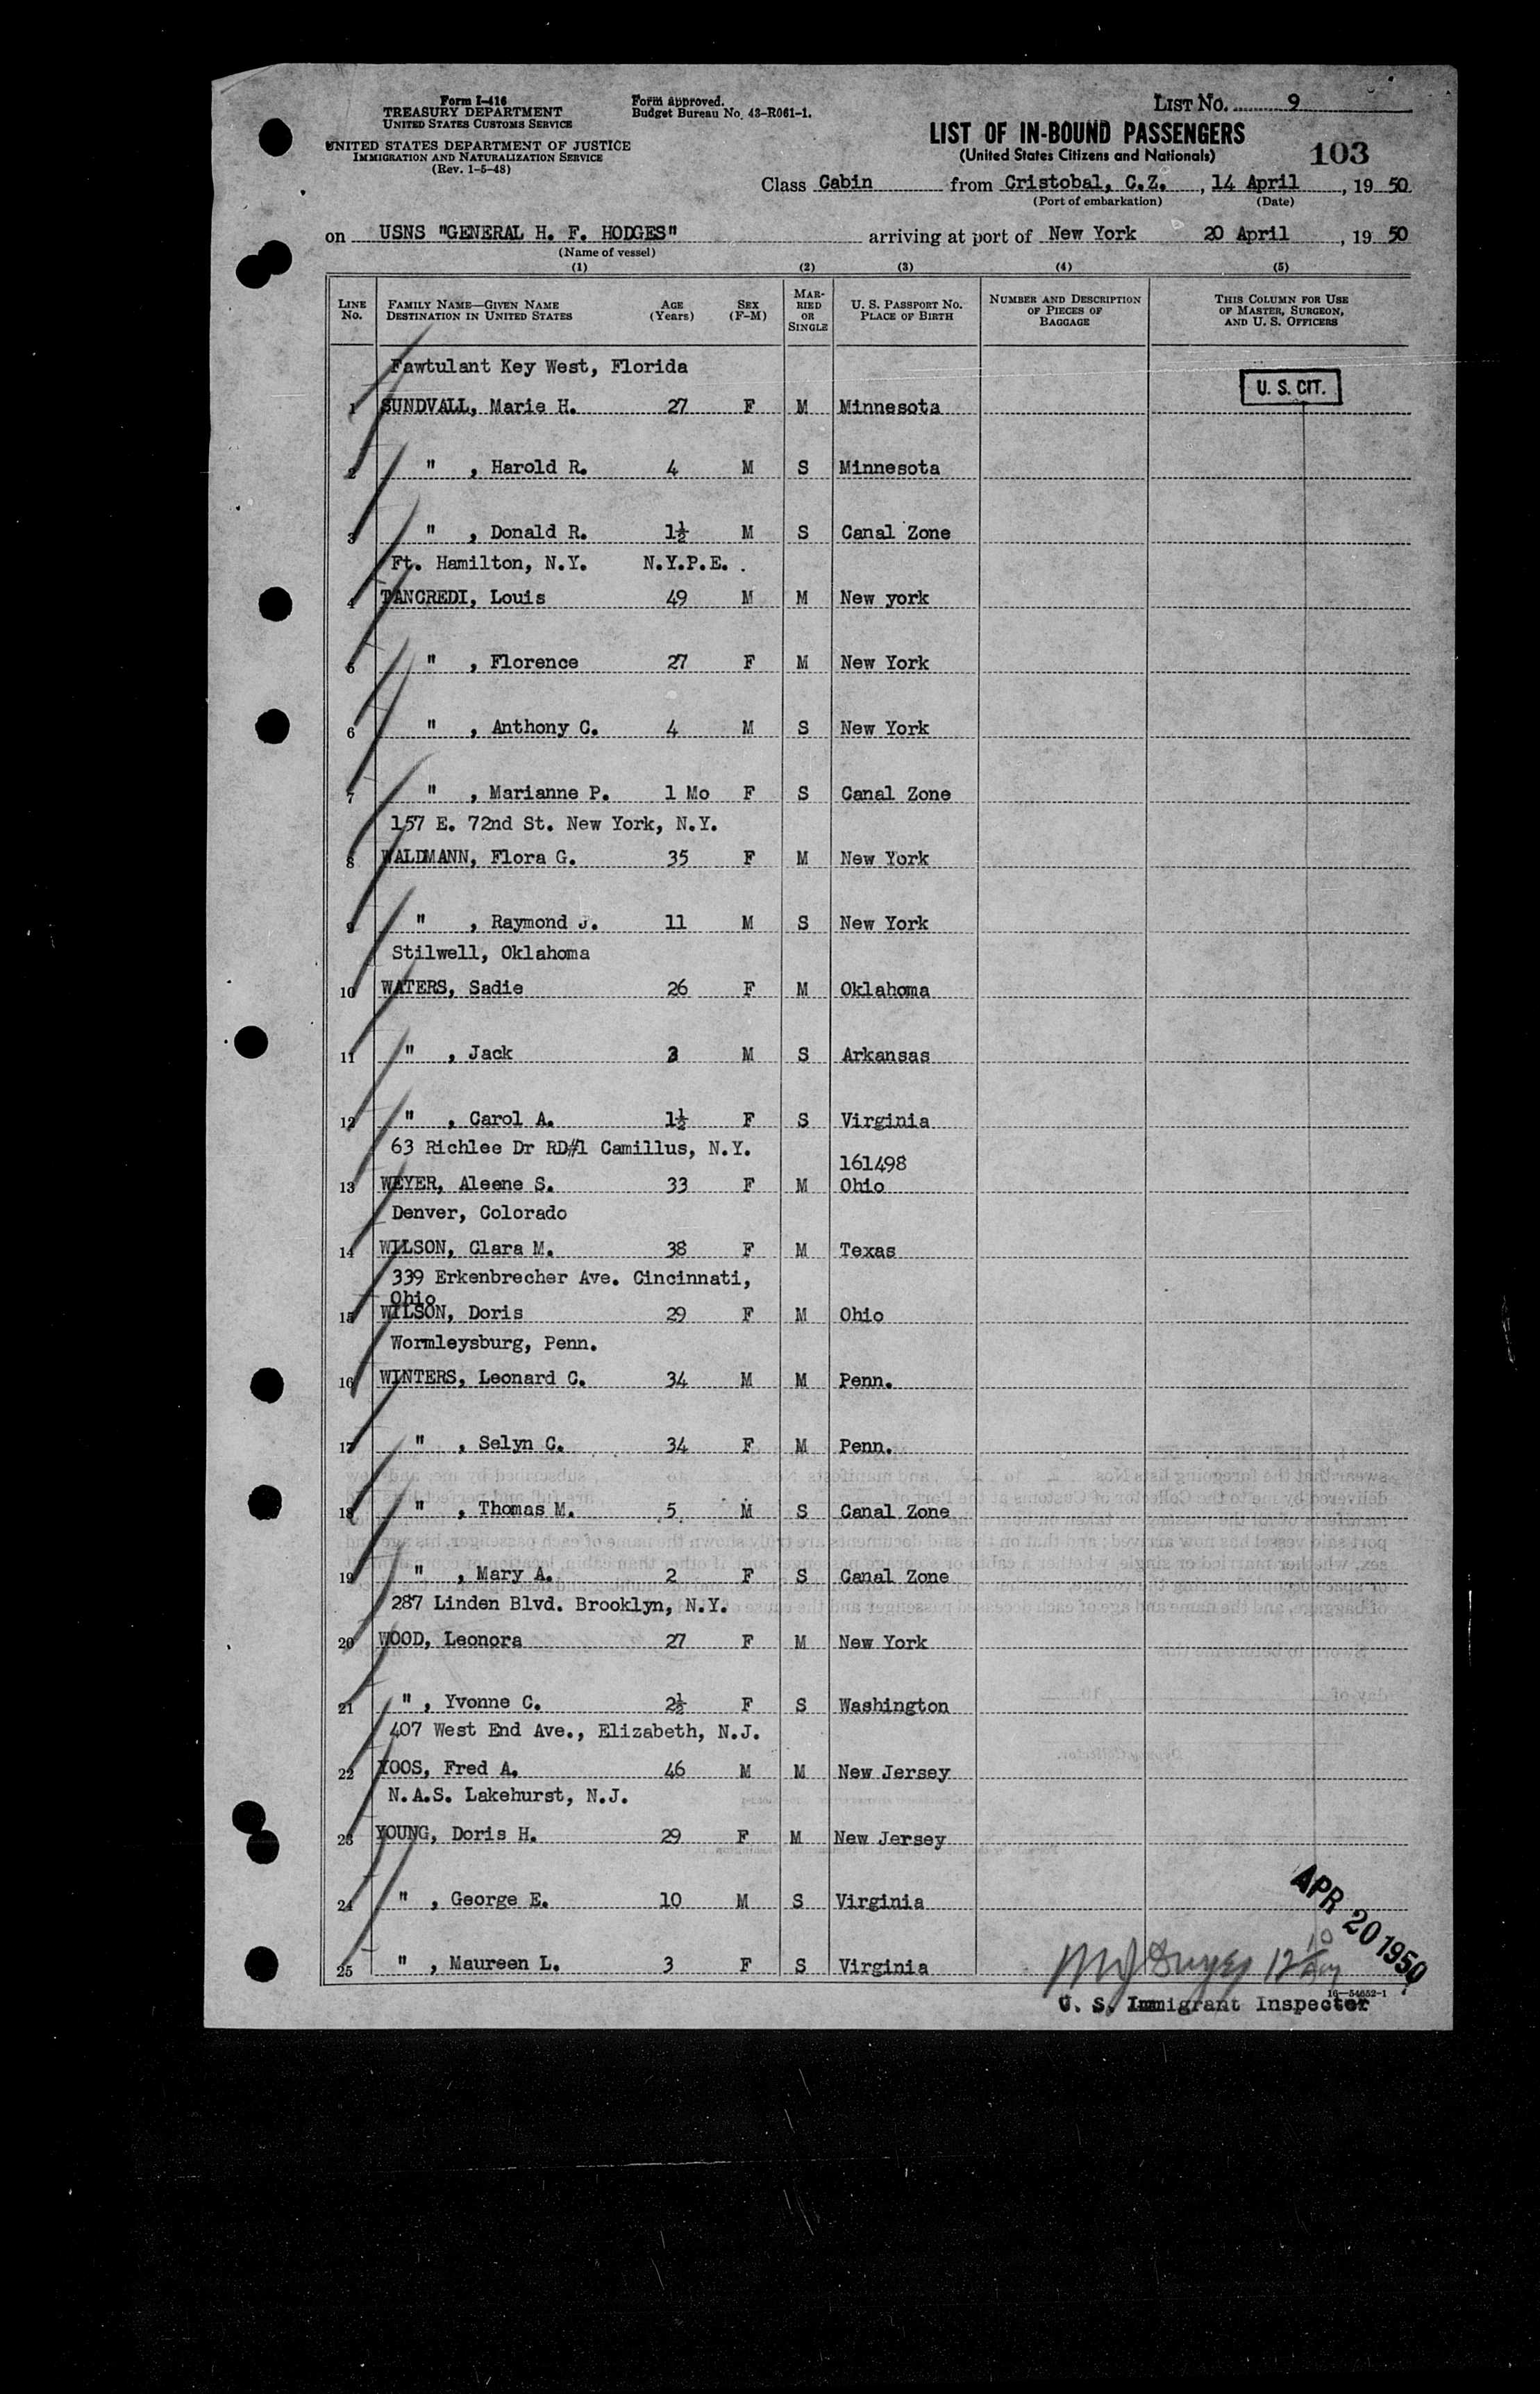 Form I-416
TREASURY DEPARTMENT
UNITED STATES CUSTOMS SERVICE
UNITED STATES DEPARTMENT OF JUSTICE
IMMIGRATION AND NATURALIZATION SERVICE
(Rev. 1-5-48)
Form approved.
Budget Bureau No. 43-R061-1.
LIST NO. 9
LIST OF IN-BOUND PASSENGERS
(United States Citizens and Nationals)
103
Class Cabin from Cristobal, C.Z. , 14 April , 19 50
(Port of embarkation) (Date)
on USNS "GENERAL H. F. HODGES" arriving at port of New York 20 April , 19 50
(Name of vessel)
(1) (2) (3) (4) (5)
LINE NO. FAMILY NAME—GIVEN NAME DESTINATION IN UNITED STATES AGE (Years) SEX (F-M) MARRIED OR SINGLE U. S. PASSPORT NO. PLACE OF BIRTH NUMBER AND DESCRIPTION OF PIECES OF BAGGAGE THIS COLUMN FOR USE OF MASTER, SURGEON, AND U. S. OFFICERS
Fawtulant Key West, Florida
U. S. CIT.
1 SUNDVALL, Marie H. 27 F M Minnesota
2 " , Harold R. 4 M S Minnesota
3 " , Donald R. 1½ M S Canal Zone
Ft. Hamilton, N.Y. N.Y.P.E. .
4 TANCREDI, Louis 49 M M New york
5 " , Florence 27 F M New York
6 " , Anthony C. 4 M S New York
7 " , Marianne P. 1 Mo F S Canal Zone
157 E. 72nd St. New York, N.Y.
8 WALDMANN, Flora G. 35 F M New York
9 " , Raymond J. 11 M S New York
Stilwell, Oklahoma
10 WATERS, Sadie 26 F M Oklahoma
11 " , Jack 3 M S Arkansas
12 " , Carol A. 1½ F S Virginia
63 Richlee Dr RD#1 Camillus, N.Y.
161498
13 WEYER, Aleene S. 33 F M Ohio
Denver, Colorado
14 WILSON, Clara M. 38 F M Texas
339 Erkenbrecher Ave. Cincinnati,
Ohio
15 WILSON, Doris 29 F M Ohio
Wormleysburg, Penn.
16 WINTERS, Leonard C. 34 M M Penn.
17 " , Selyn C. 34 F M Penn.
18 " , Thomas M. 5 M S Canal Zone
19 " , Mary A. 2 F S Canal Zone
287 Linden Blvd. Brooklyn, N.Y.
20 WOOD, Leonora 27 F M New York
21 " , Yvonne C. 2½ F S Washington
407 West End Ave., Elizabeth, N.J.
22 YOOS, Fred A. 46 M M New Jersey
N.A.S. Lakehurst, N.J.
23 YOUNG, Doris H. 29 F M New Jersey
24 " , George E. 10 M S Virginia
25 " , Maureen L. 3 F S Virginia
APR 20 1950
16—54652-1
U. S. Immigrant Inspector